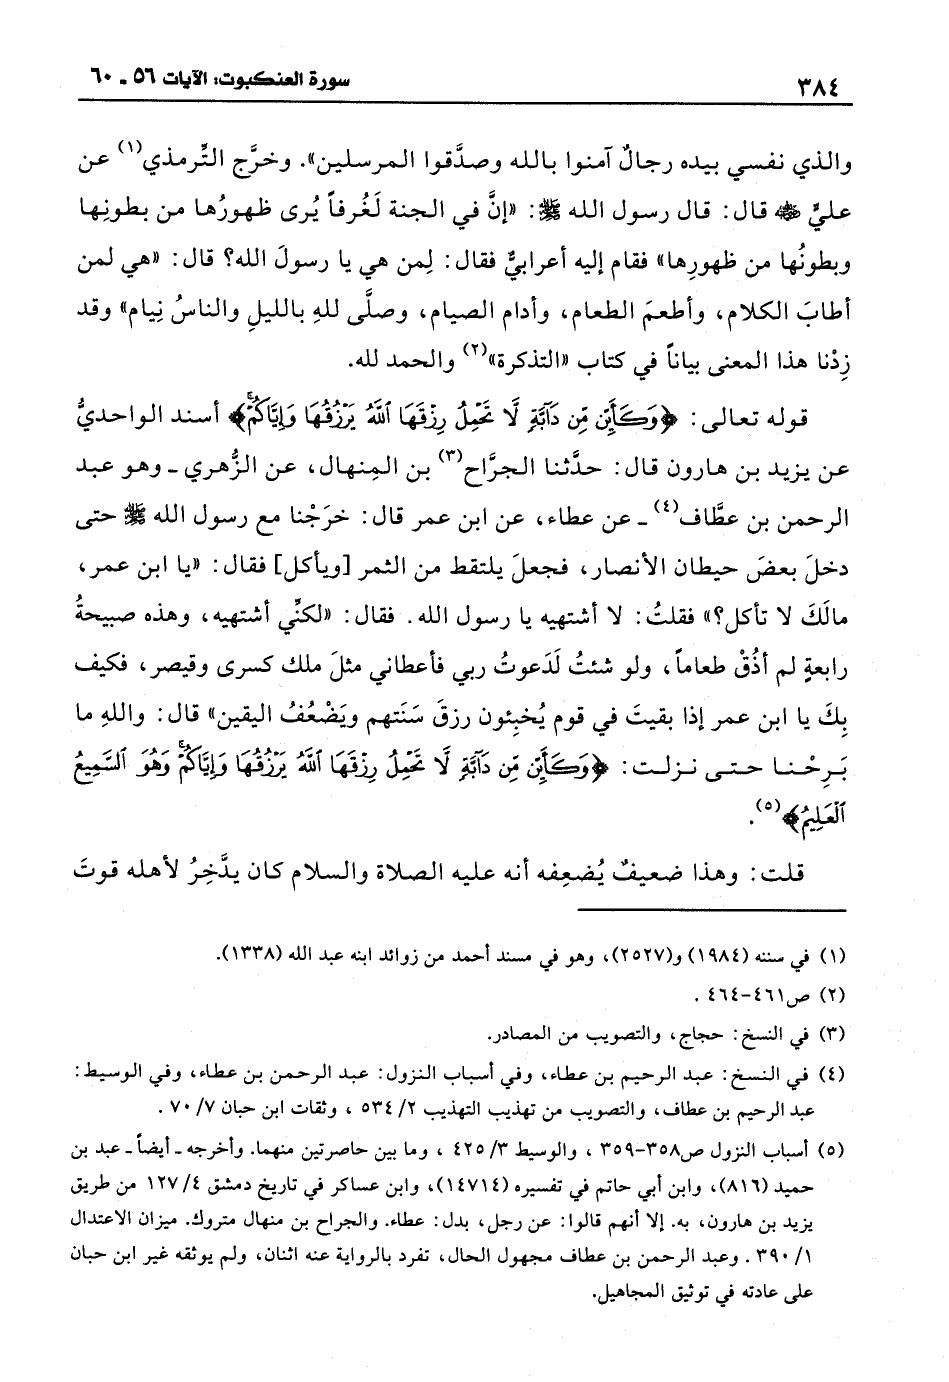 ٣٨٤
سورة العنكبوت: الآيات ٥٦ ـ ٦٠
والذي نفسي بيده رجالٌ آمنوا بالله وصدَّقوا المرسلين». وخرَّج التِّرمذي(١) عن
عليٍّ ﷺ قال: قال رسول الله ﷺ: «إنَّ في الجنة لَغُرفاً يُرى ظهورُها من بطونِها
وبطونُها من ظهورِها» فقام إليه أعرابيٌّ فقال: لِمن هي يا رسولَ الله؟ قال: «هي لمن
أطابَ الكلام، وأطعمَ الطعام، وأدام الصيام، وصلَّى للهِ بالليلِ والناسُ نِيام» وقد
زِدْنا هذا المعنى بياناً في كتاب «التذكرة»(٢) والحمد لله.
قوله تعالى: ﴿وَكَأَيِّن مِّن دَآبَّةٍ لَّا تَحْمِلُ رِزْقَهَا ٱللَّهُ يَرْزُقُهَا وَإِيَّاكُمْۚ﴾ أسند الواحديُّ
عن يزيد بن هارون قال: حدَّثنا الجرَّاح(٣) بن المِنهال، عن الزُّهري ـ وهو عبد
الرحمن بن عطَّاف(٤) ـ عن عطاء، عن ابن عمر قال: خرَجْنا مع رسول الله ﷺ حتى
دخلَ بعضَ حيطان الأنصار، فجعلَ يلتقط من الثمر [ويأكل] فقال: «يا ابن عمر،
مالَكَ لا تأكل؟» فقلتُ: لا أشتهيه يا رسول الله. فقال: «لكنِّي أشتهيه، وهذه صبيحةُ
رابعةٍ لم أذُقْ طعاماً، ولو شئتُ لَدَعوتُ ربي فأعطاني مثلَ ملك كسرى وقيصر، فكيف
بِكَ يا ابن عمر إذا بقيتَ في قوم يُخبِئون رزقَ سَنَتهم ويَضْعُفُ اليقين» قال: واللهِ ما
بَرِحْنا حتى نزلت: ﴿وَكَأَيِّن مِّن دَآبَّةٍ لَّا تَحْمِلُ رِزْقَهَا ٱللَّهُ يَرْزُقُهَا وَإِيَّاكُمْۚ وَهُوَ ٱلسَّمِيعُ
ٱلْعَلِيمُ﴾(٥).
قلت: وهذا ضعيفٌ يُضعِفه أنه عليه الصلاة والسلام كان يدَّخِرُ لأهله قوتَ
(١) في سننه (١٩٨٤) و(٢٥٢٧)، وهو في مسند أحمد من زوائد ابنه عبد الله (١٣٣٨).
(٢) ص٤٦١-٤٦٤ .
(٣) في النسخ: حجاج، والتصويب من المصادر.
(٤) في النسخ: عبد الرحيم بن عطاء، وفي أسباب النزول: عبد الرحمن بن عطاء، وفي الوسيط:
عبد الرحيم بن عطاف، والتصويب من تهذيب التهذيب ٢/ ٥٣٤ ، وثقات ابن حبان ٧/ ٧٠ .
(٥) أسباب النزول ص٣٥٨-٣٥٩ ، والوسيط ٣/ ٤٢٥ ، وما بين حاصرتين منهما. وأخرجه ـ أيضاً ـ عبد بن
حميد (٨١٦)، وابن أبي حاتم في تفسيره (١٤٧١٤)، وابن عساكر في تاريخ دمشق ٤/ ١٢٧ من طريق
يزيد بن هارون، به. إلا أنهم قالوا: عن رجل، بدل: عطاء. والجراح بن منهال متروك. ميزان الاعتدال
١/ ٣٩٠ . وعبد الرحمن بن عطاف مجهول الحال، تفرد بالرواية عنه اثنان، ولم يوثقه غير ابن حبان
على عادته في توثيق المجاهيل.